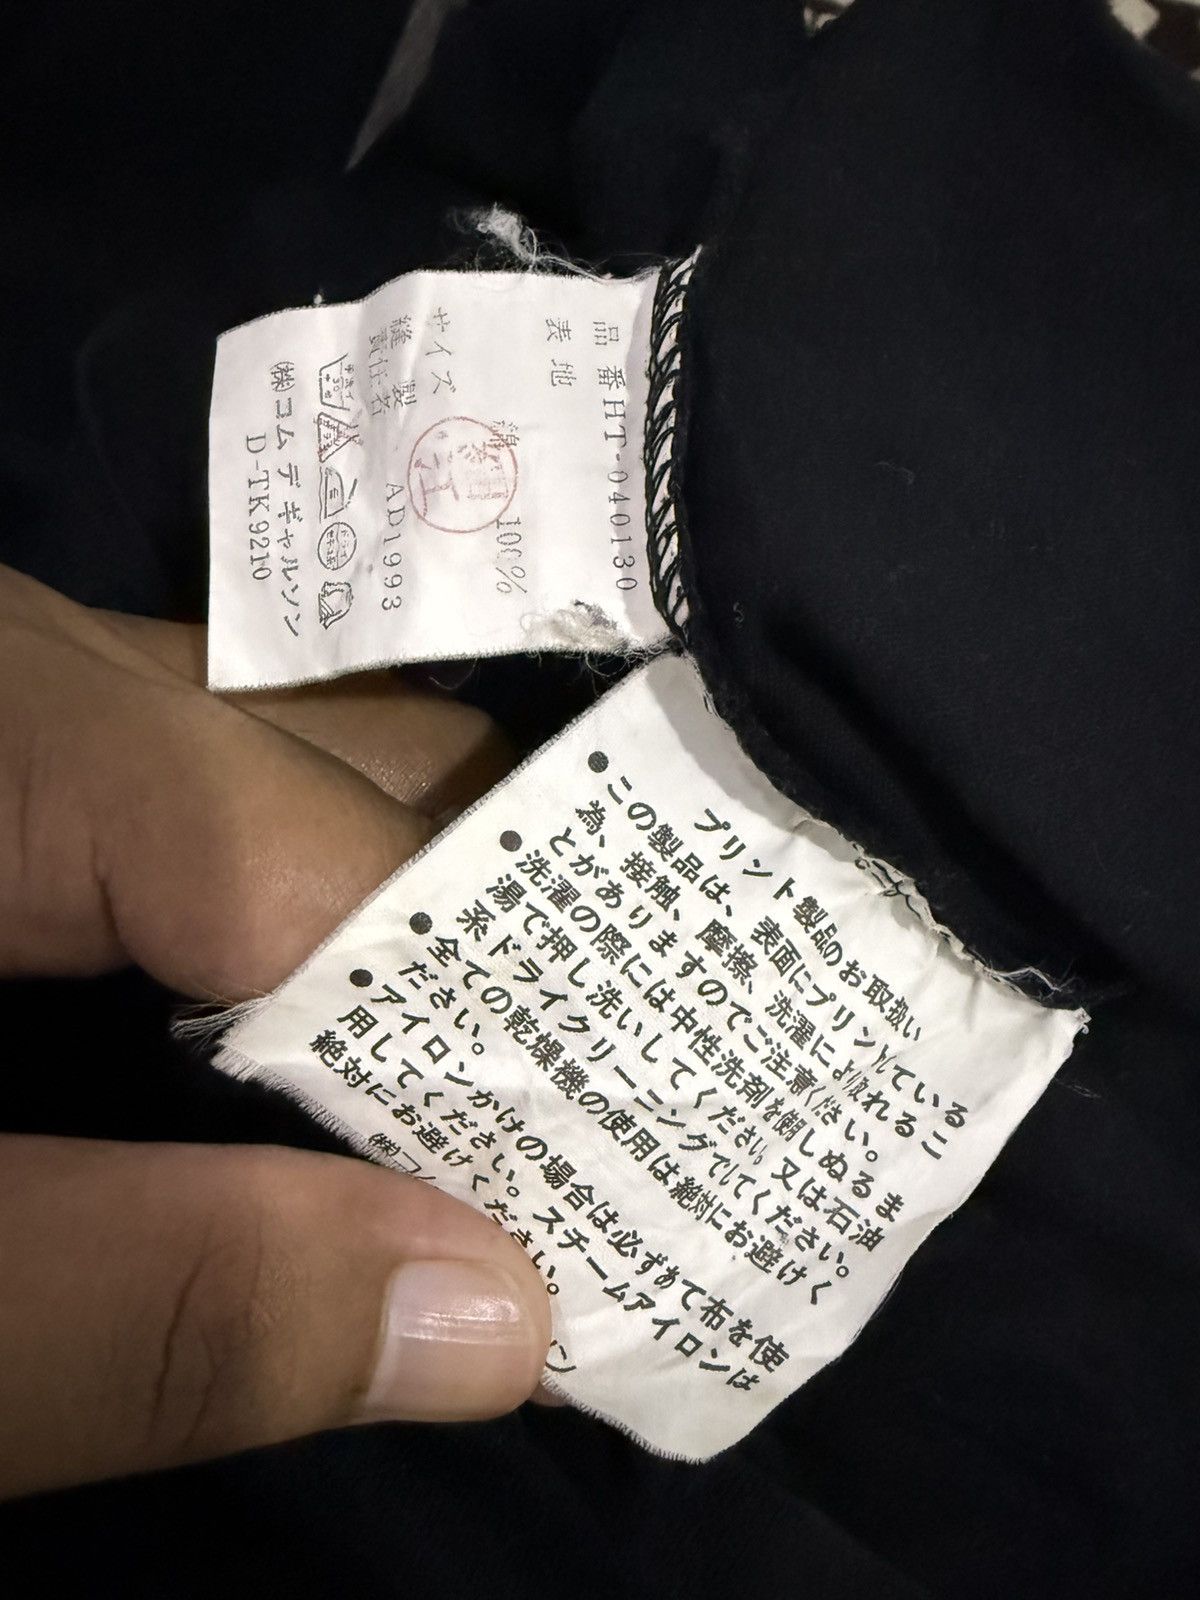 品番HT-040130
表地
綿 100%
サイズ
縫製 AD1993
責任者名
㈱コムデギャルソン
D-TK9210
プリント製品のお取扱い
●この製品は、表面にプリントしている
為、接触、摩擦、洗濯により取れるこ
とがありますのでご注意ください。
●洗濯の際には中性洗剤を使用しぬるま
湯で押し洗いしてください。又は石油
系ドライクリーニングでしてください。
●全ての乾燥機の使用は絶対にお避けく
ださい。
●アイロンかけの場合は必ずあて布を使
用してください。スチームアイロンは
絶対にお避けください。